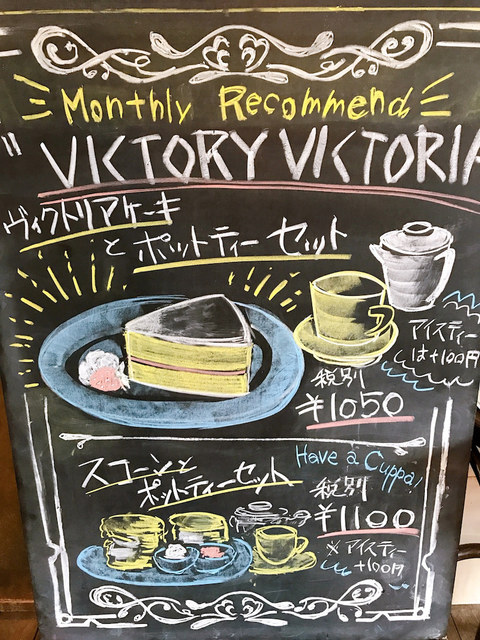 Monthly Recommend
"VICTORY VICTORIA
ヴィクトリアケーキ
とポットティーセット
アイスティー
は+100円
税別
¥1050
スコーンと
ポットティーセット
Have a Cuppa!
税別
¥1100
※アイスティー
+100円